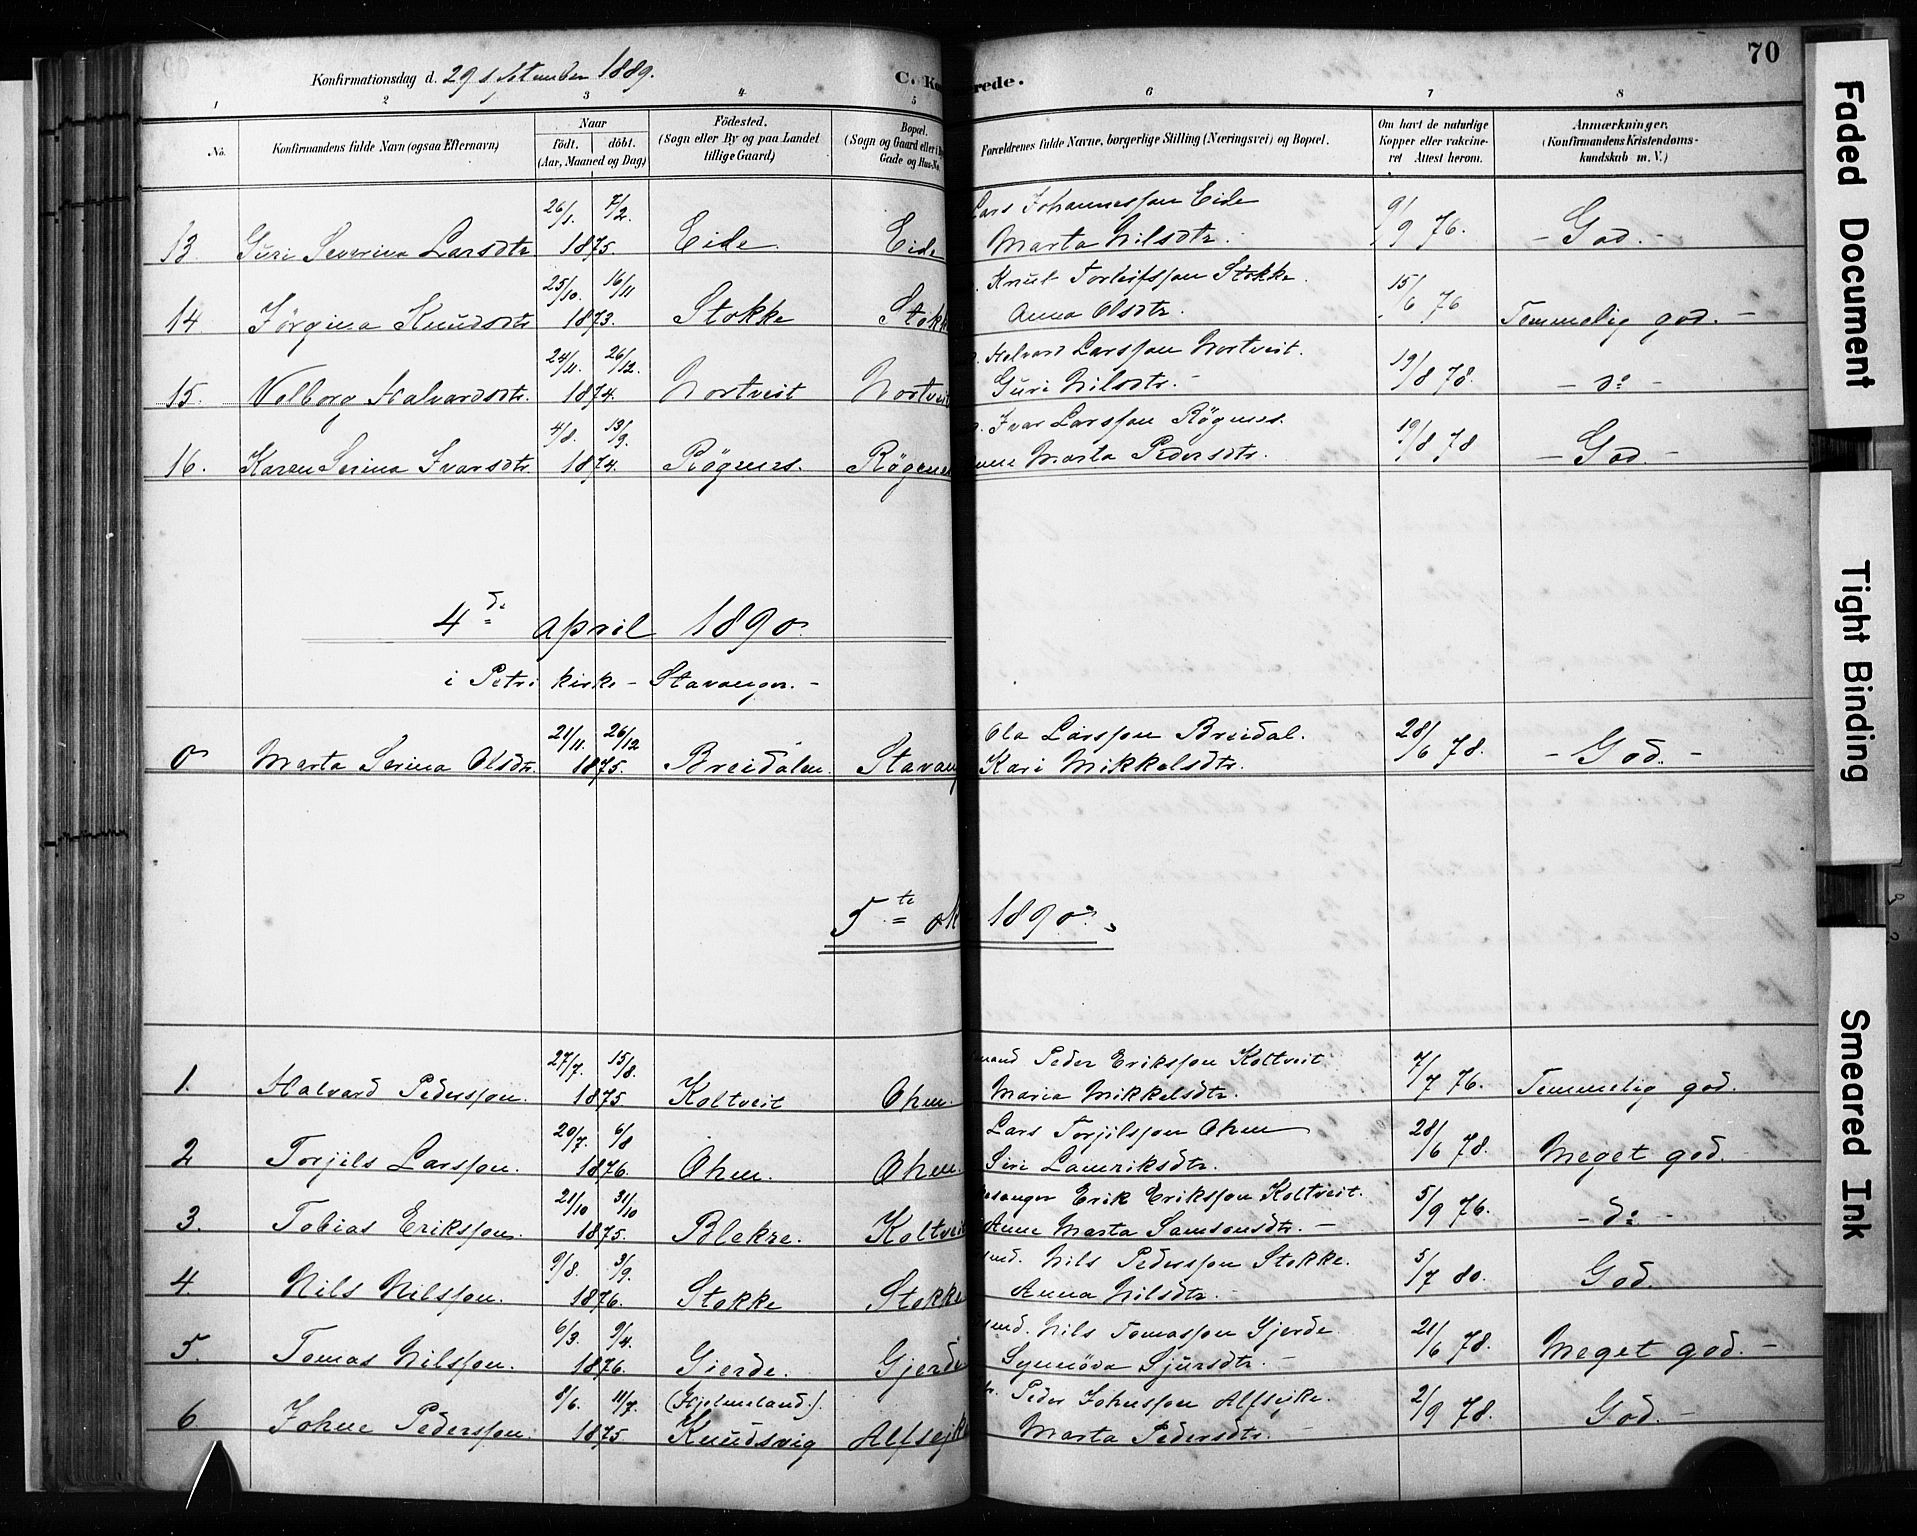 70
Konfirmationsdag d. 29 september 1889.
C. Ko rede.
1 2 3 4 5 6 7 8
No. Konfirmandens fulde Navn (ogsaa Efternavn) Naar født. døbt. (Aar, Maaned og Dag) Födested. (Sogn eller By og paa Landet tillige Gaard) Bopæl. (Sogn og Gaard eller Gade og Hus-No. Forældrenes fulde Navne, borgerlige Stilling (Næringsvei) og Bopæl. Om havt de naturlige Kopper eller vakcineret Attest herom. Anmærkninger. (Konfirmandens Kristendomskundskab m. V.)
26/1. 7/2. Lars Johannesson Eide 9/9 76.
13. Guri Severina Larsdtr 1875. Eide. Eide Marta Nilsdtr. - God. -
25/10. 16/11 Knut Torleifsson Stokke. 15/6 76
14 Jørgina Knudsdtr 1873. Stokke Stokk Anna Olsdtr. Temmelig god. -
24/11. 26/12. Halvard Larsson Nortveit. 19/8 78.
15. Velborg Halvardsdtr. 1874. Nortveit Nortveit Guri Nilsdtr. - - do -
4/8. 13/9. Ivar Larsson Røgenes. 19/8 78
16. Karen Serina Ivarsdtr. 1874. Røgenes. Røgenes Marta Pedersdtr. - God. -
4de april 1890.
i Petri kirke - Stavanger. -
21/11. 26/12 Ola Larsson Breidal. 28/6 78.
0 Marta Serina Olsdtr. 1875. Breidalen. Stavang Kari Mikkelsdtr. - God. -
5te ok 1890.
27/7. 15/8. mand Peder Eriksson Koltveit 7/7 76.
1. Halvard Pedersson. 1875 Koltveit Ohm. Maria Mikkelsdtr. Temmelig god.
20/7. 6/8 Lars Torjilsson Ohm 28/6 78.
2 Torjils Larsson. 1876. Ohm. Ohm. Siri Lamriksdtr. Meget god.
21/10 31/10 Erik Eriksson Koltveit. 5/9 76.
3. Tobias Eriksson. 1875. Blekre. Koltveit Anne Marta Samsonsdtr. - - do -
9/8. 3/9. Nils Pedersson Stokke. 5/7 80.
4. Nils Nilsson. 1876. Stokke Stokke Anna Nilsdtr. - God
6/3. 9/4. Nils Tomasson Gjerde 21/6 78.
5. Tomas Nilsson. 1876. Gierde. Gjerde Synnöva Sjursdtr. - Meget god. -
8/6. 11/7. (Hjelmeland.) Peder Johnsson Alfsyke. 2/9 78.
6 Johne Pedersson. 1875 Knudsvig Alfsyk Marta Pedersdtr. - God. -
Faded Document
Tight Binding
Smeared Ink